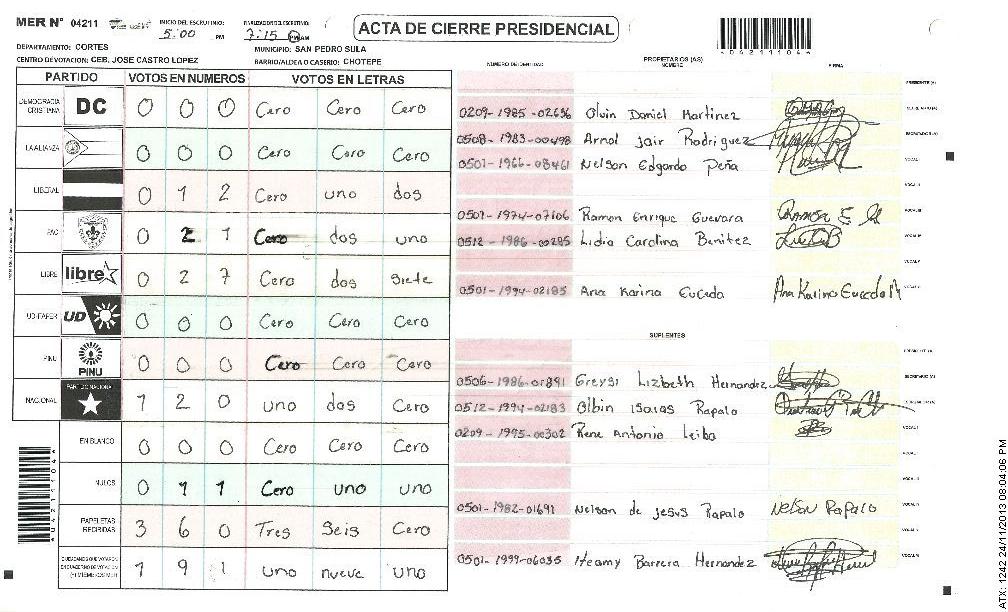 MER N° 04211 INICIO DEL ESCRUTINIO: 5:00 PM FINALIZACION DEL ESCRUTINIO: 7:15 PM AM
ACTA DE CIERRE PRESIDENCIAL
042111044
DEPARTAMENTO: CORTES MUNICIPIO: SAN PEDRO SULA
CENTRO DE VOTACION: CEB. JOSE CASTRO LOPEZ BARRIO/ALDEA O CASERIO: CHOTEPE
NUMERO DE IDENTIDAD PROPIETARIOS (AS) NOMBRE FIRMA
PARTIDO VOTOS EN NUMEROS VOTOS EN LETRAS
DEMOCRACIA CRISTIANA DC 0 0 0 Cero Cero Cero
LA ALIANZA 0 0 0 Cero Cero Cero
LIBERAL 0 1 2 Cero uno dos
PAC 0 2 1 Cero dos uno
LIBRE libre 0 2 7 Cero dos siete
UD-FAPER UD 0 0 0 Cero Cero Cero
PINU PINU 0 0 0 Cero Cero Cero
NACIONAL PARTIDO NACIONAL 1 2 0 uno dos Cero
EN BLANCO 0 0 0 Cero Cero Cero
NULOS 0 1 1 Cero uno uno
PAPELETAS RECIBIDAS 3 6 0 Tres Seis Cero
CIUDADANOS QUE VOTARON EN CUADERNO DE VOTACION (+) MIEMBROS MER 1 9 1 uno nueve uno
PRESIDENTE (A)
0209-1985-02636 Olvin Daniel Martinez SECRETARIO (A)
0508-1983-00498 Arnol Jair Rodriguez ESCRUTADOR (A)
0501-1966-08461 Nelson Edgardo Peña VOCAL I
VOCAL II
0501-1974-07106 Ramon Enrique Guevara VOCAL III
0512-1986-00285 Lidia Carolina Benitez VOCAL IV
VOCAL V
0501-1994-02185 Ana Karina Euceda Ana Karina Euceda M VOCAL VI
SUPLENTES
PRESIDENTE (A)
0506-1986-01891 Greysi Lizbeth Hernandez SECRETARIO (A)
0512-1994-02183 Olbin isaias Rapalo ESCRUTADOR (A)
0209-1995-00302 Rene Antonio Leiba VOCAL I
VOCAL II
VOCAL III
0501-1982-01691 Nelson de Jesus Rapalo Nelson Rapalo VOCAL IV
VOCAL V
0501-1999-06035 Heamy Barrera Hernandez VOCAL VI
042111044
ATX: 1242 24/11/2013 08:04:06 PM